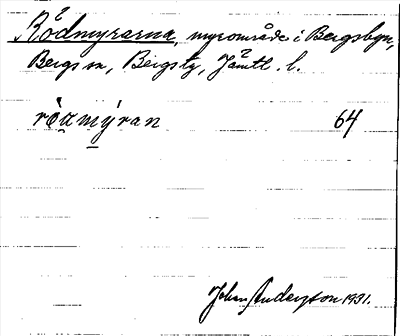 Rödmyrarna, myrområde i Bergsbyn,
Bergs sn, Bergs tg, Jämtl. l.
64
Johan Anderson 1931.